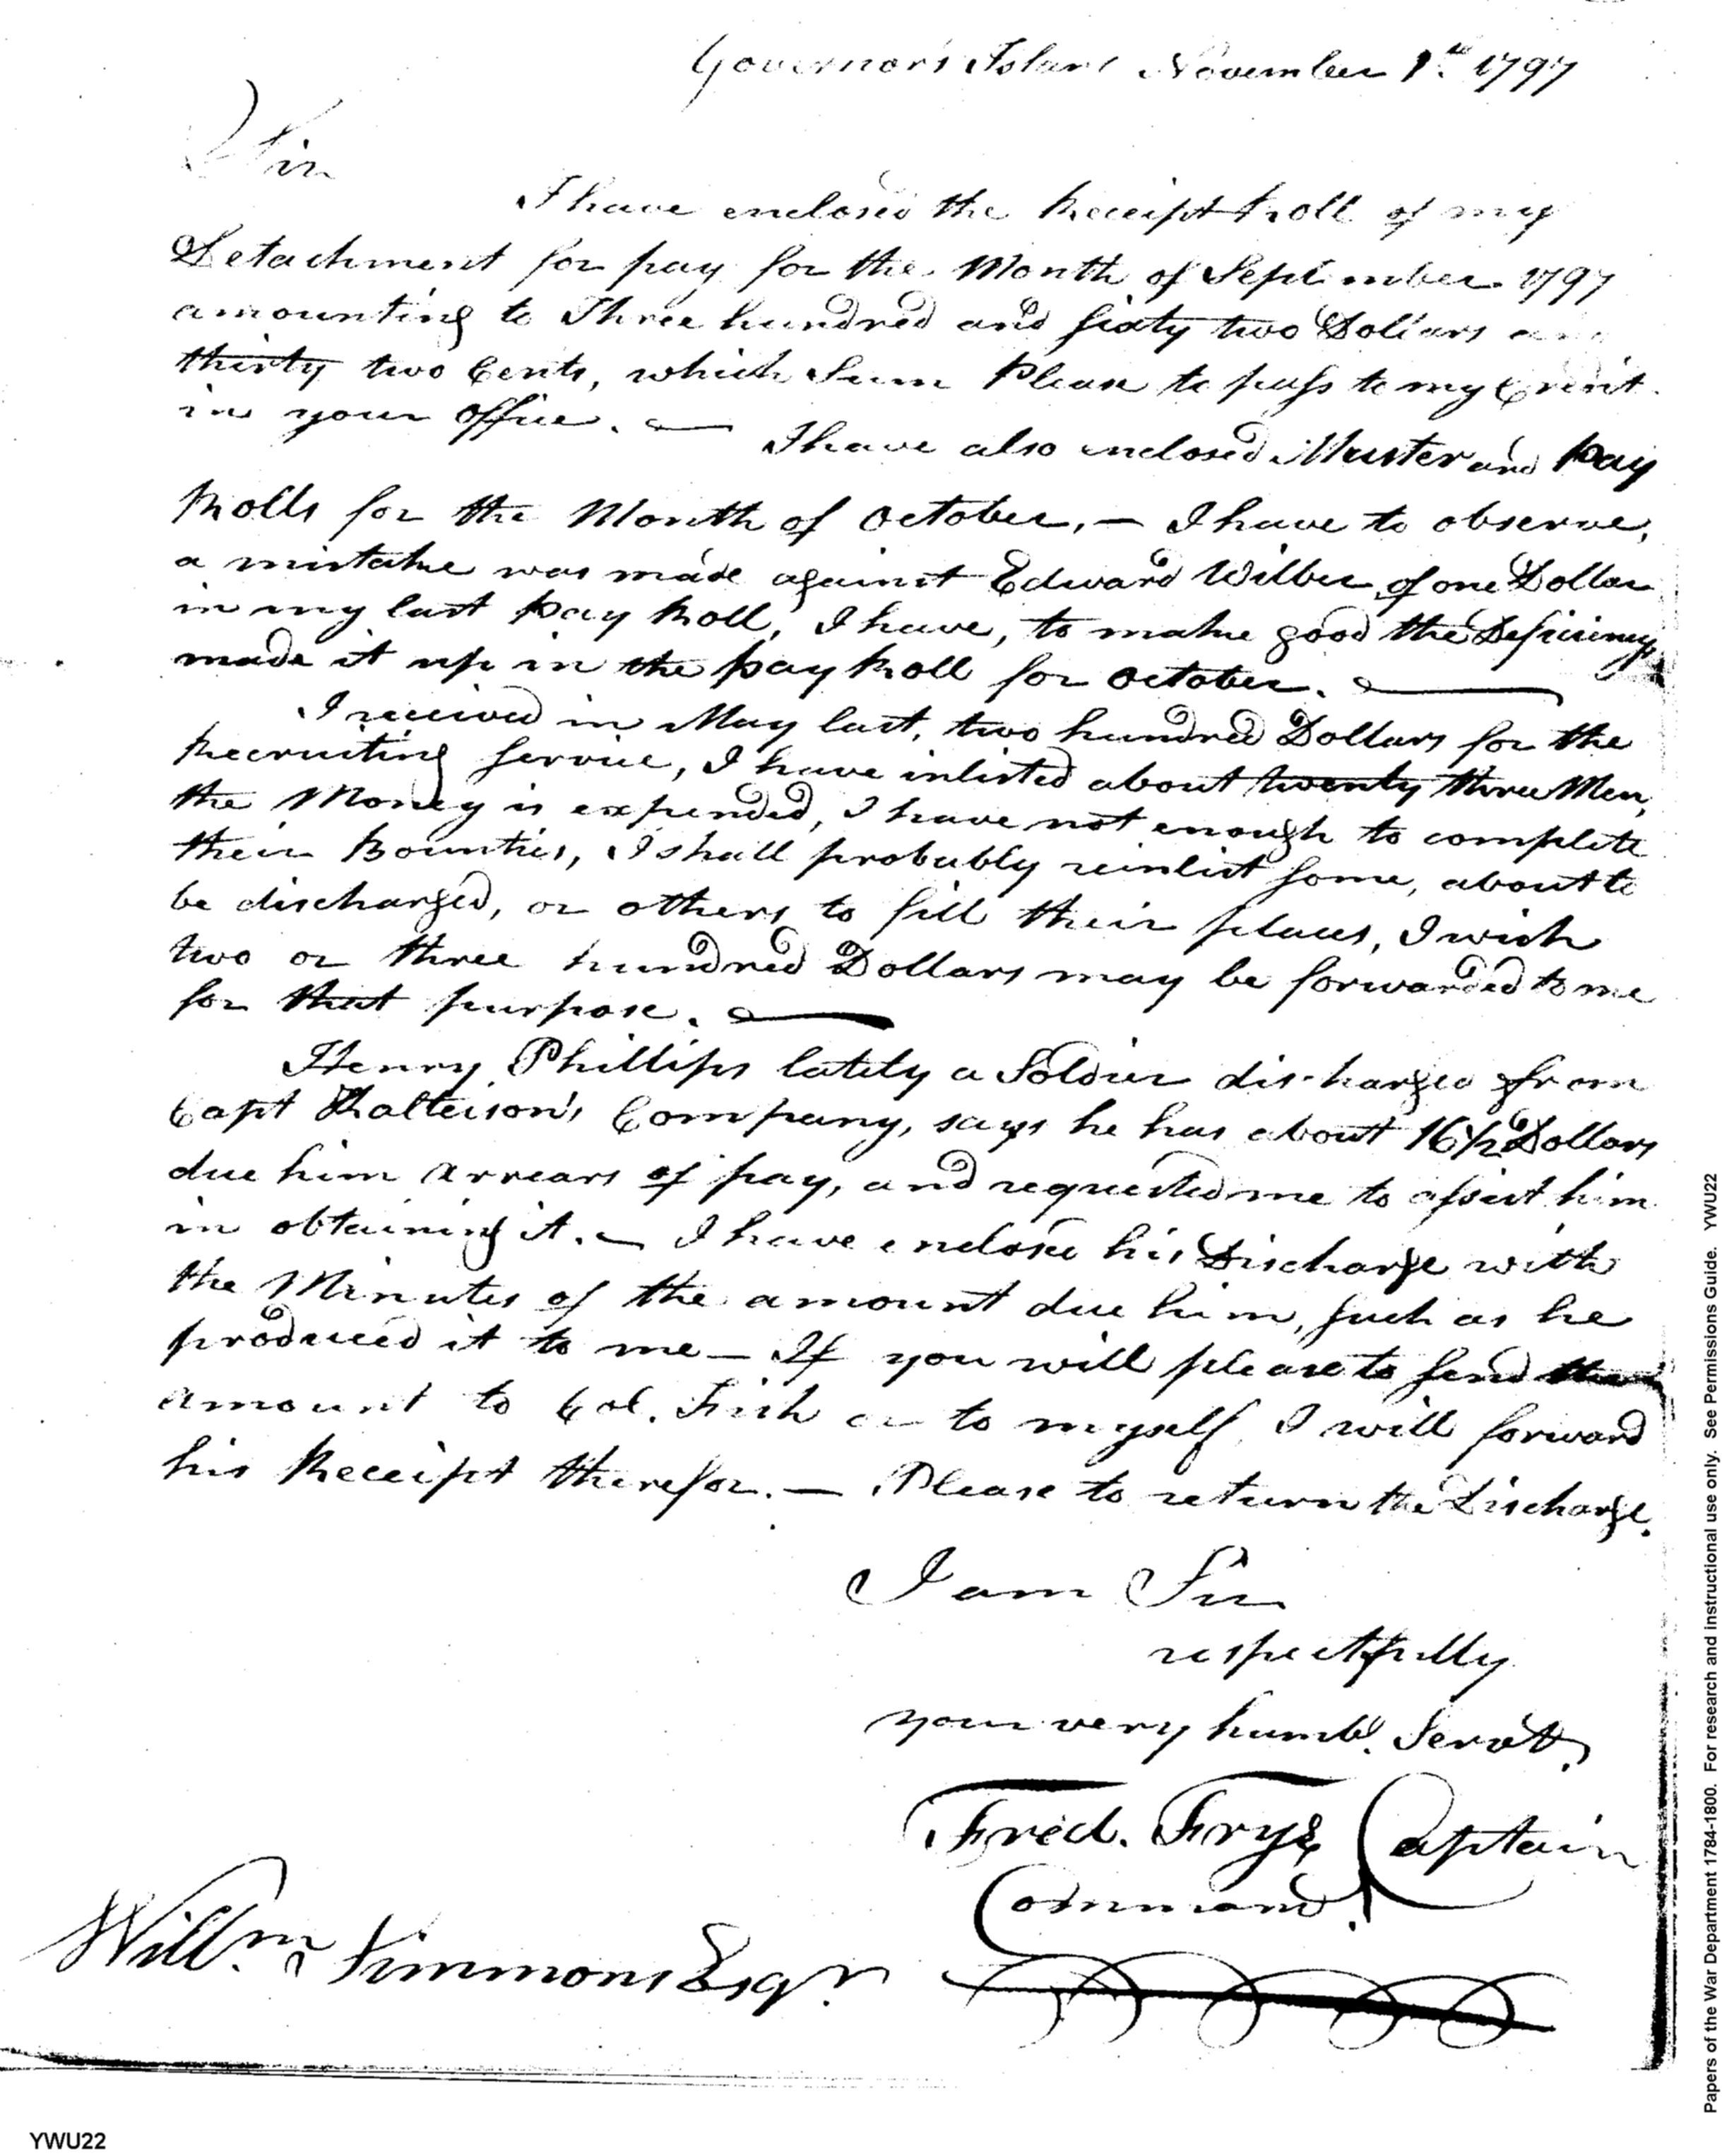 Governor's Island November 1st 1797
Sir
I have enclosed the Receipt Roll of my
Detachment for pay for the Month of September 1797
amounting to Three hundred and sixty two Dollars and
thirty two Cents, which Sum Please to pass to my Credit
in your office. —
I have also enclosed Muster and Pay
Rolls for the Month of October, — I have to observe,
a mistake was made against Edward Wilber of one Dollar
in my last Pay Roll, I have, to make good the Deficiency,
made it up in the pay Roll for October. —
I received in May last, two hundred Dollars for the
Recruiting service, I have inlisted about twenty three Men,
the Money is expended, I have not enough to complete
their Bounties, I shall probably reinlist some, about to
be discharged, or others to fill their places, I wish
two or three hundred Dollars may be forwarded to me
for that purpose. —
Henry Phillips lately a Soldier discharged from
Capt Company, says he has about 16 1/2 Dollars
due him arrears of pay, and requested me to assist him
in obtaining it. — I have enclose his Discharge with
the Minutes of the amount due him, such as he
produced it to me — If you will please to send the
amount to Col. Fish or to myself, I will forward
his Receipt therefor. — Please to return the Discharge.
I am Sir
respectfully
your very humbl. Servt.
Fred. Frye Captain
Command.
Willm. Simmons Esqr.
YWU22
Papers of the War Department 1784-1800. For research and instructional use only. See Permissions Guide. YWU22